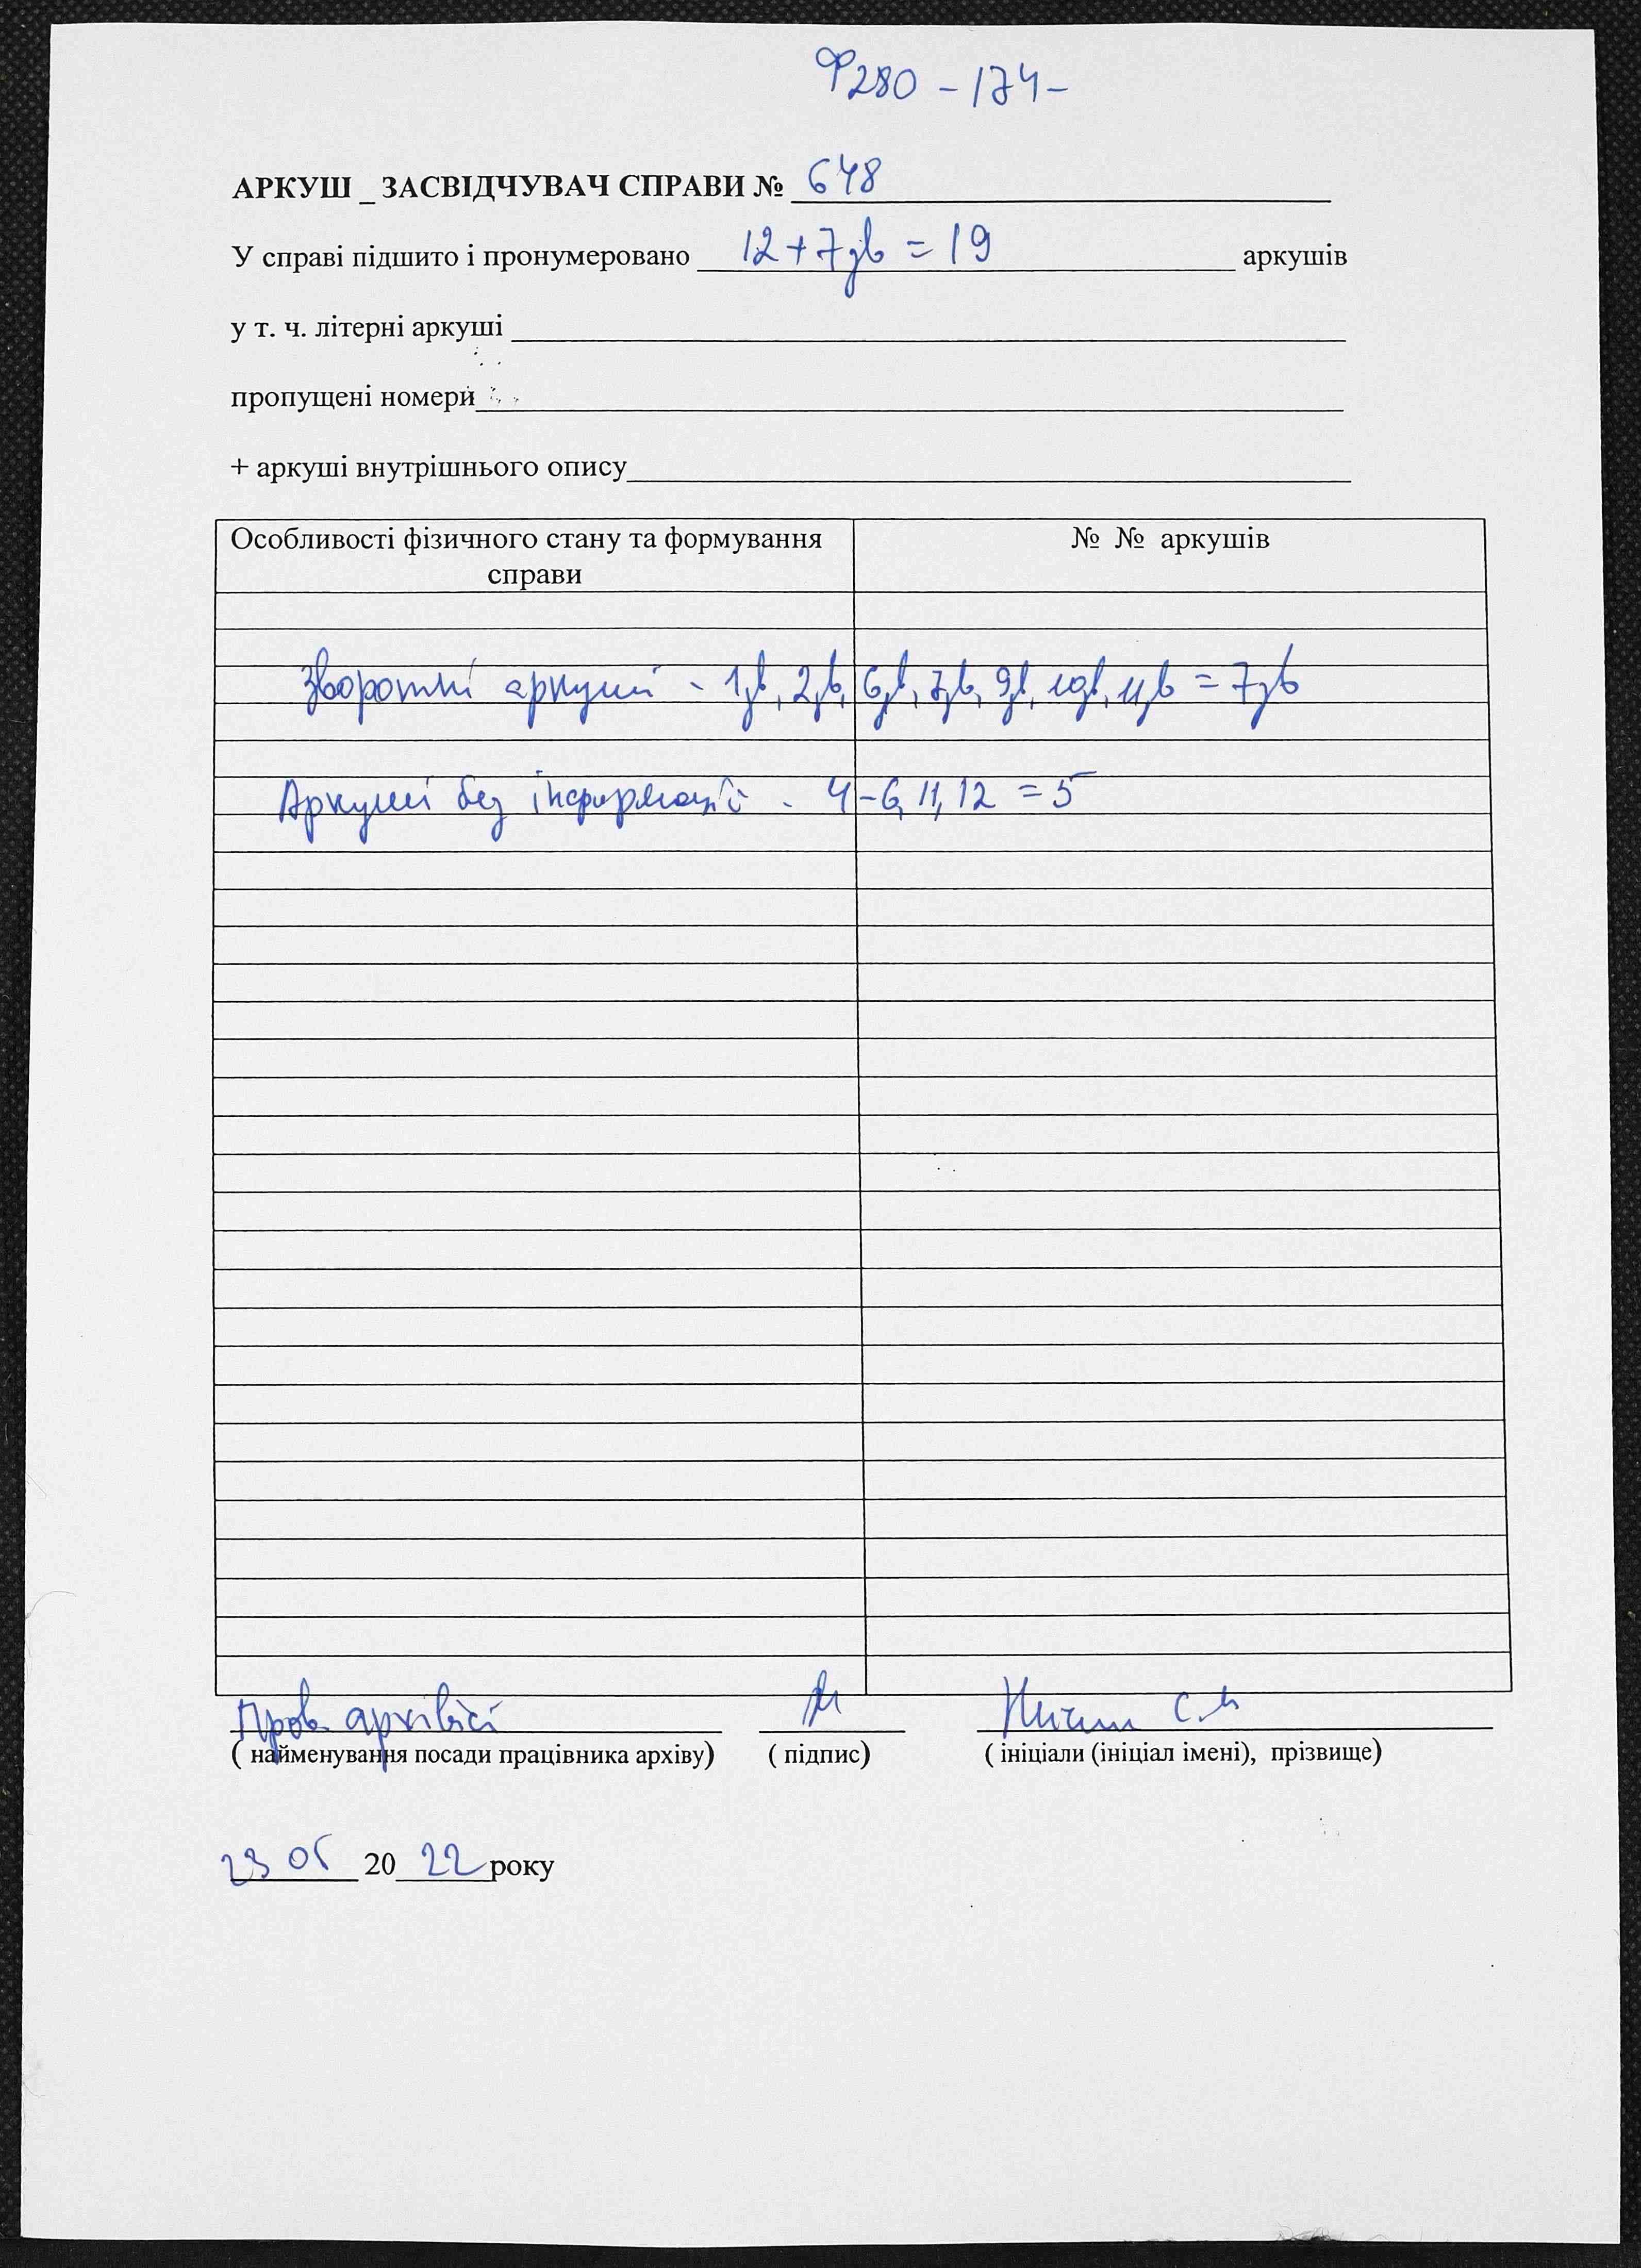 Ф280 - 174 -
АРКУШ _ ЗАСВІДЧУВАЧ СПРАВИ № 648
У справі підшито і пронумеровано 12+7зв = 19 аркушів
у т. ч. літерні аркуші
пропущені номери
+ аркуші внутрішнього опису
Особливості фізичного стану та формування справи
№ № аркушів
Зворотні аркуші - 1зв, 2зв, 6зв, 7зв, 9зв, 10зв, 11зв = 7зв
Аркуші без інформації - 4-6, 11, 12 = 5
Пров. архівіст
( найменування посади працівника архіву) ( підпис) ( ініціали (ініціал імені), прізвище)
23 05 20 22 року